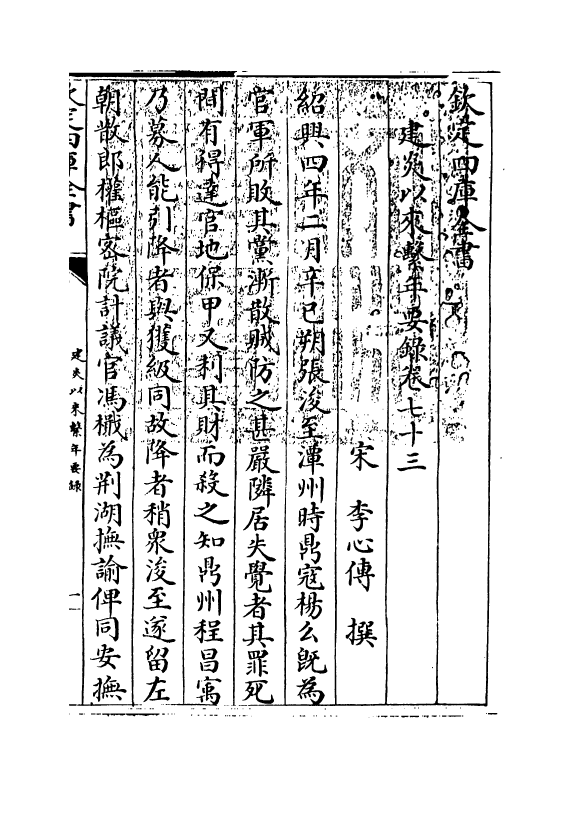 欽定四庫全書
建炎以來繫年要錄卷七十三
宋 李心傳 撰
紹興四年二月辛巳朔張浚至潭州時鼎寇楊么既為
官軍所敗其黨漸散賊防之甚嚴隣居失覺者其罪死
間有得達官地保甲又利其財而殺之知鼎州程昌㝢
乃募人能引降者與獲級同故降者稍衆浚至遂留左
朝散郎權樞密院計議官馮檝為荆湖撫諭俾同安撫
欽定四庫全書
建炎以來繫年要錄
一